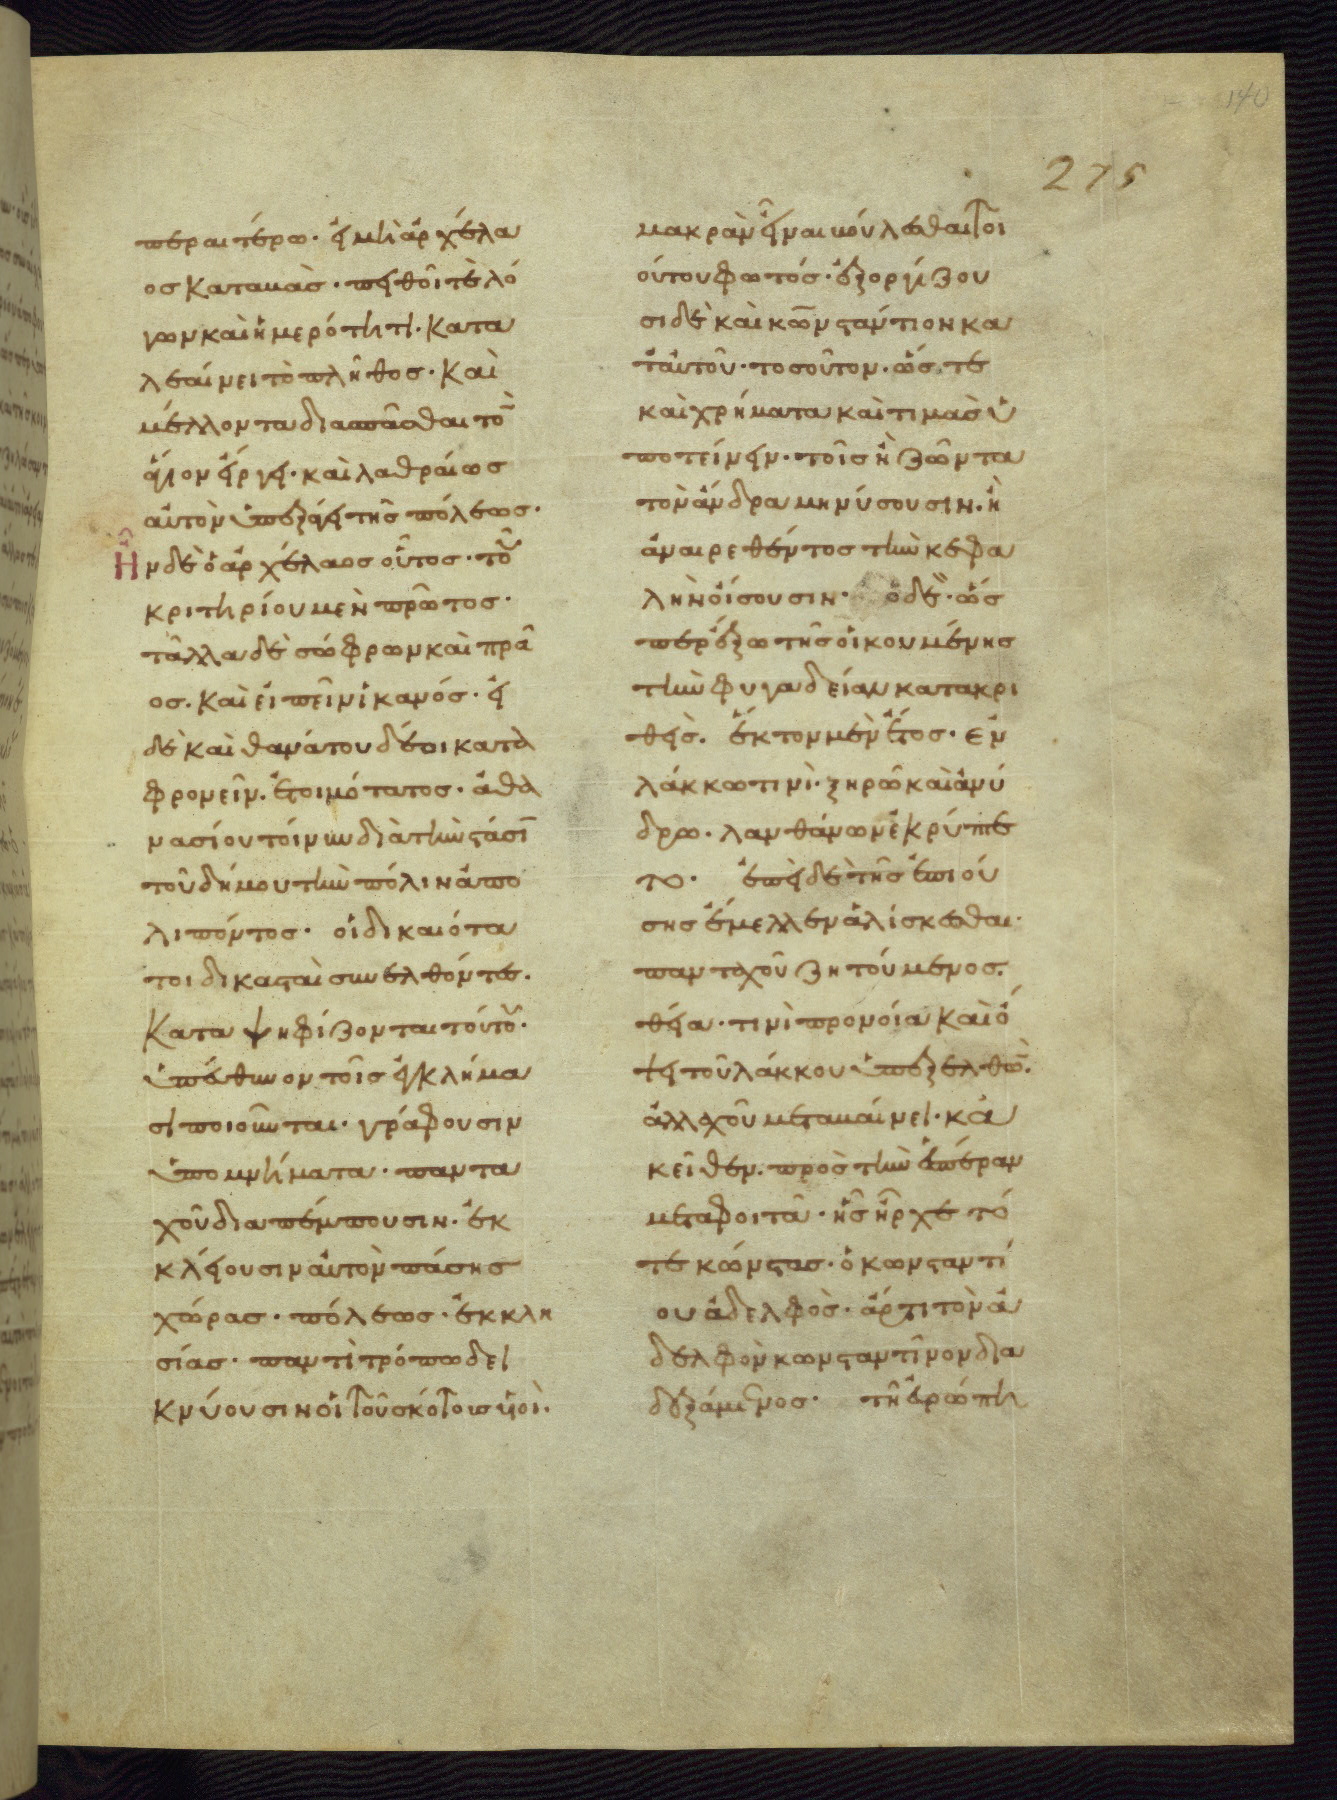 140
275
περαιτέρω· εἰ μὴ ἀρχέλα
ος καταβὰς· πειθοῖ τὲ λό
γων καὶ ἡμερότητι· κατα
λεαίνει τὸ πλῆθος· καὶ
μέλλοντα διασπᾶσθαι τὸν
ἅγιον εἴργει· καὶ λαθραίως
αὐτὸν ὑπεξάγει τῆς πόλεως·
Ἦν δὲ ὁ ἀρχέλαος οὗτος· τοῦ
κριτηρίου μὲν πρῶτος·
τἄλλα δὲ σώφρων καὶ πρᾶ
ος. καὶ εἰπεῖν ἱκανός· εἰ
δὲ καὶ θανάτου δέοι κατα
φρονεῖν. ἑτοιμότατος· ἀθα
νασίου τοίνυν διὰ τὴν στάσιν
τοῦ δήμου τὴν πόλιν ἀπο
λιπόντος· οἱ δικαιότα
τοι δικασταὶ συνελθόντες.
καταψηφίζονται τούτου·
ὑπεύθυνον τοῖς ἐγκλήμα
σι ποιοῦνται· γράφουσιν
ὑπομνήματα· παντα
χοῦ διαπέμπουσιν· ἐκ
κλείουσιν αὐτὸν πάσης
χώρας· πόλεως· ἐκκλη
σίας· παντὶ τρόπω δει
κνύουσιν οἱ τοῦ σκότους υἱοὶ.
μακρὰν εἶναι βούλεσθαι τοι
ούτου φωτός· ἐξοργίζου
σι δὲ καὶ κωνσταντιον κα
τ αὐτοῦ· τοσοῦτον· ὥς τε
καὶ χρήματα καὶ τιμὰς ὑ
ποτείνειν· τοῖς ἢ ζῶντα
τὸν ἄνδρα μηνύσουσιν· ἢ
ἀναιρεθέντος τὴν κεφα
λὴν οἴσουσιν· ὁ δὲ· ὥσ
περ ἔξω τῆς οἰκουμένης
τὴν φυγαδείαν κατακρι
θεὶς. ἕκτον μὲν ἔτος· ἐν
λάκκω τινὶ· ξηρῶ καὶ ἀνύ
δρω· λανθάνων ἐκρύπτε
το· ἐπεὶ δὲ τῆς ἐπιού
σης ἔμελλεν ἁλίσκεσθαι·
πανταχοῦ ζητούμενος.
θεία· τινὶ προνοία καὶ ὅ
γε τοῦ λάκκου ὑπεξελθὼν.
ἀλλαχοῦ μεταβαίνει· κἀ
κεῖθεν. πρὸς τὴν ἑσπέραν
μεταφοιτᾶ· ἧς ἦρχε τό
τε κώνστας· ὁ κωνσταντί
ου ἀδελφὸς· ἄρτι τὸν ἀ
δελφὸν κωνσταντῖνον δια
δεξάμενος· τῆ εὐρώπη